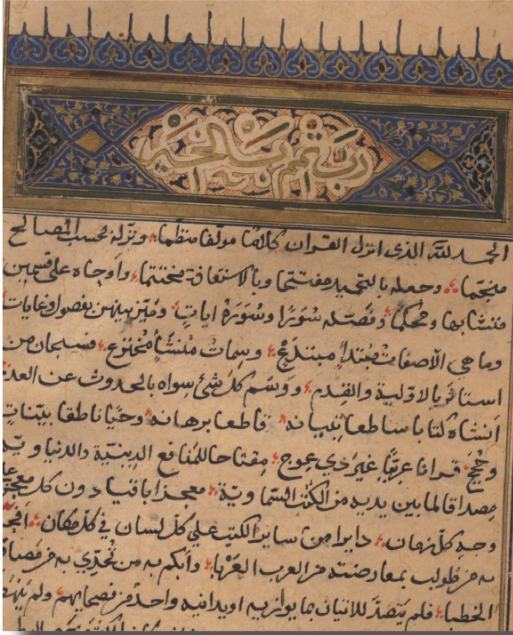 رب تمم بالخير
الحمد لله الذى انزل القران كلاما مولفا منظما ونزله بحسب المصالح
منجما وجعله بالتحميد مفتتحا وبالاستعاذة مختتما واوحاه على قسمين
متشابها ومحكما وفصله سورا وسوره ايات وميز بينهن بفصول وغايات
وما هى الا صفات مبتدا مبتدع وسمات منشأ مخترع فسبحان من
استاثر بالاولية والقدم ووسم كل شئ سواه بالحدوث عن العدم
انشاه كتابا ساطعا تبيانه قاطعا برهانه وحيا ناطقا ببينات
وحجج قرانا عربيا غير ذي عوج مفتاحا للمنافع الدينية والدنياوية
مصداقا لما بين يديه من الكتب السماوية معجزا باقيا دون كل معجز على
وجه كل زمان دايرا من ساير الكتب على كل لسان في كل مكان افحم
به من طولب بمعارضته من العرب العربا وابكم به من تحدي به من مصاقع
الخطبا فلم يتصد للاتيان بما يوازيه او يدانيه واحد من فصحايهم ولم ينهض